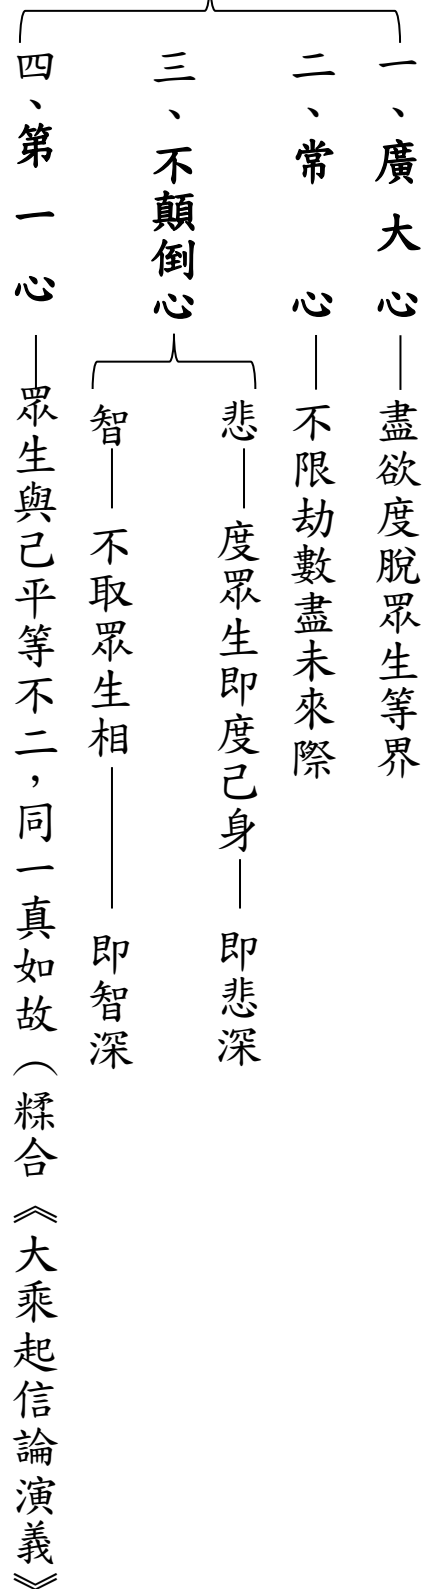 一、廣大心——盡欲度脫眾生等界
二、常心——不限劫數盡未來際
三、不顛倒心
悲——度眾生即度己身——即悲深
智——不取眾生相——即智深
四、第一心——眾生與己平等不二，同一真如故（糅合《大乘起信論演義》